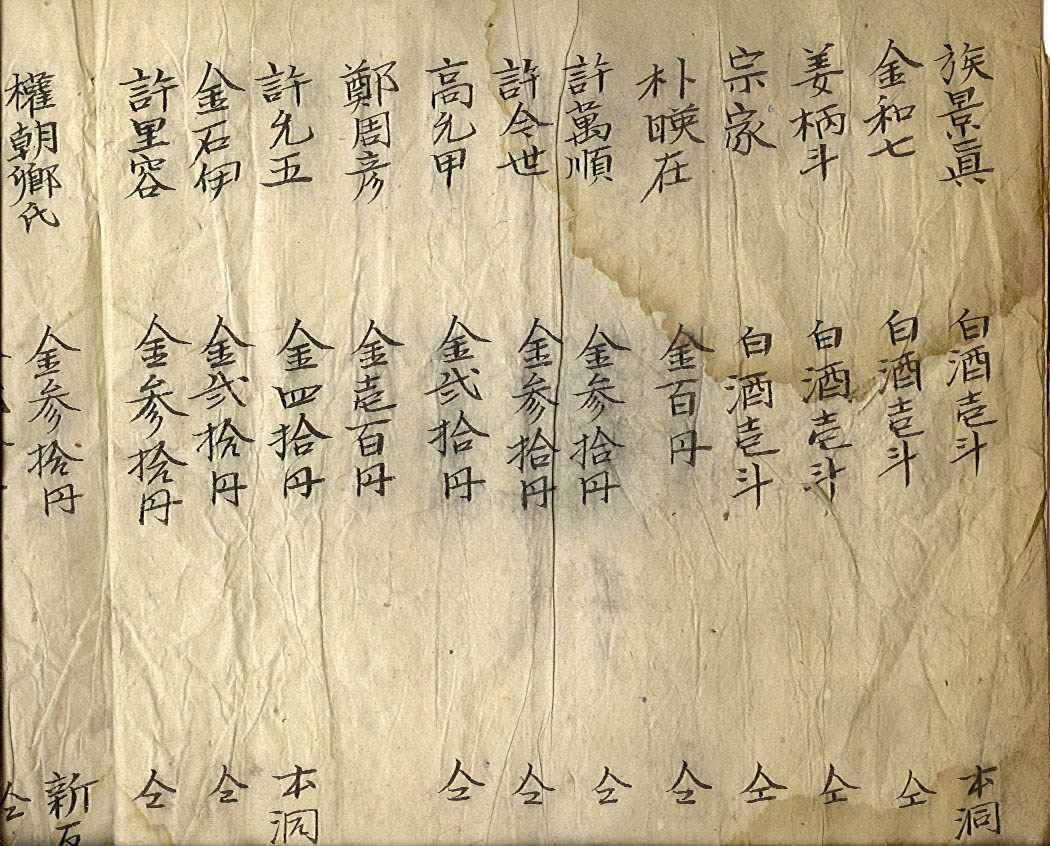 族景眞 白酒壱斗 本洞
金和七 白酒壱斗 仝
姜柄斗 白酒壱斗 仝
宗家 白酒壱斗 仝
朴暎在 金百円 仝
許萬順 金参拾円 仝
許令世 金参拾円 仝
高允甲 金弐拾円 仝
鄭周彦 金壱百円
許允五 金四拾円 本洞
金石伊 金弐拾円 仝
許里容 金参拾円 仝
權朝鄕氏 金参拾円 新
仝